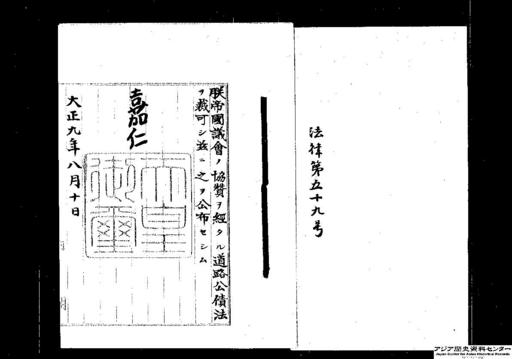 法律第五十九号
朕帝國議會ノ協贊ヲ經タル道路公債法
ヲ裁可シ茲ニ之ヲ公布セシム
嘉仁
天皇御璽
大正九年八月十日
アジア歴史資料センター
Japan Center for Asian Historical Records